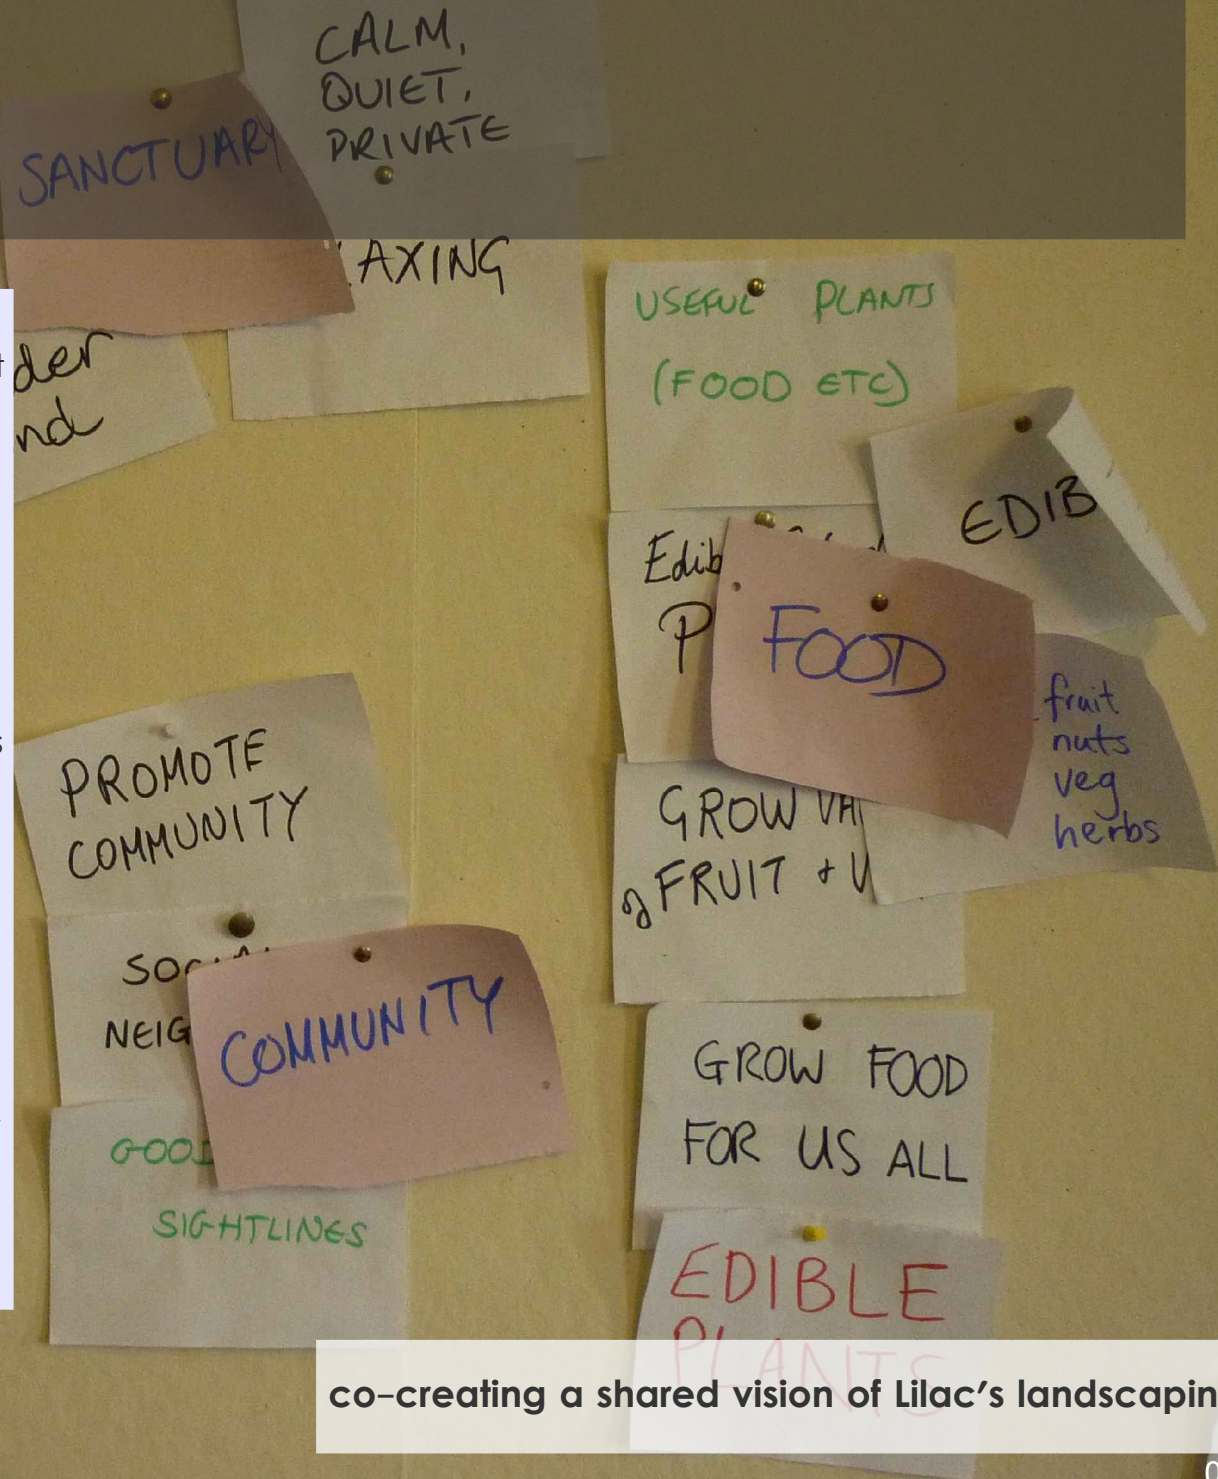 CALM,
QUIET,
PRIVATE
SANCTUARY
AXING
der
nd
USEFUL PLANTS
(FOOD ETC)
EDIB
Edib
P
FOOD
fruit
nuts
veg
herbs
GROW VA
of FRUIT + V
PROMOTE
COMMUNITY
SOCIAL
NEIG
COMMUNITY
GOOD
SIGHTLINES
GROW FOOD
FOR US ALL
EDIBLE
PLANTS
co-creating a shared vision of Lilac's landscapin